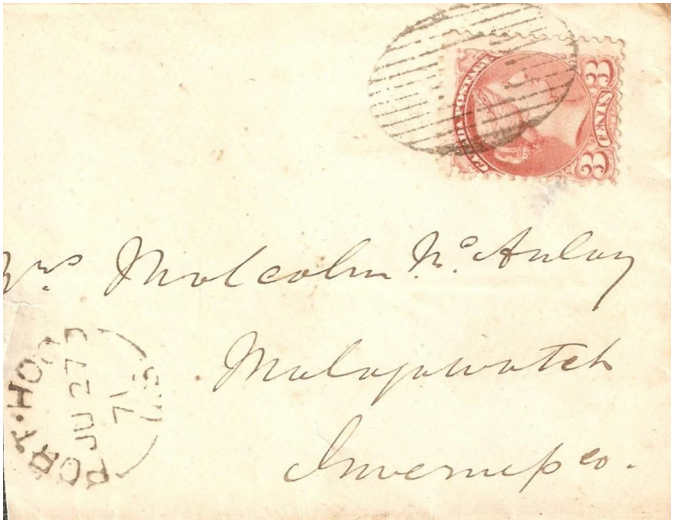 CANADA POSTAGE
3 CENTS 3
Mrs Malcolm Mc Aulay
Malagawatch
Inverness co.
PORT·HOO
JU 27
71
N.S